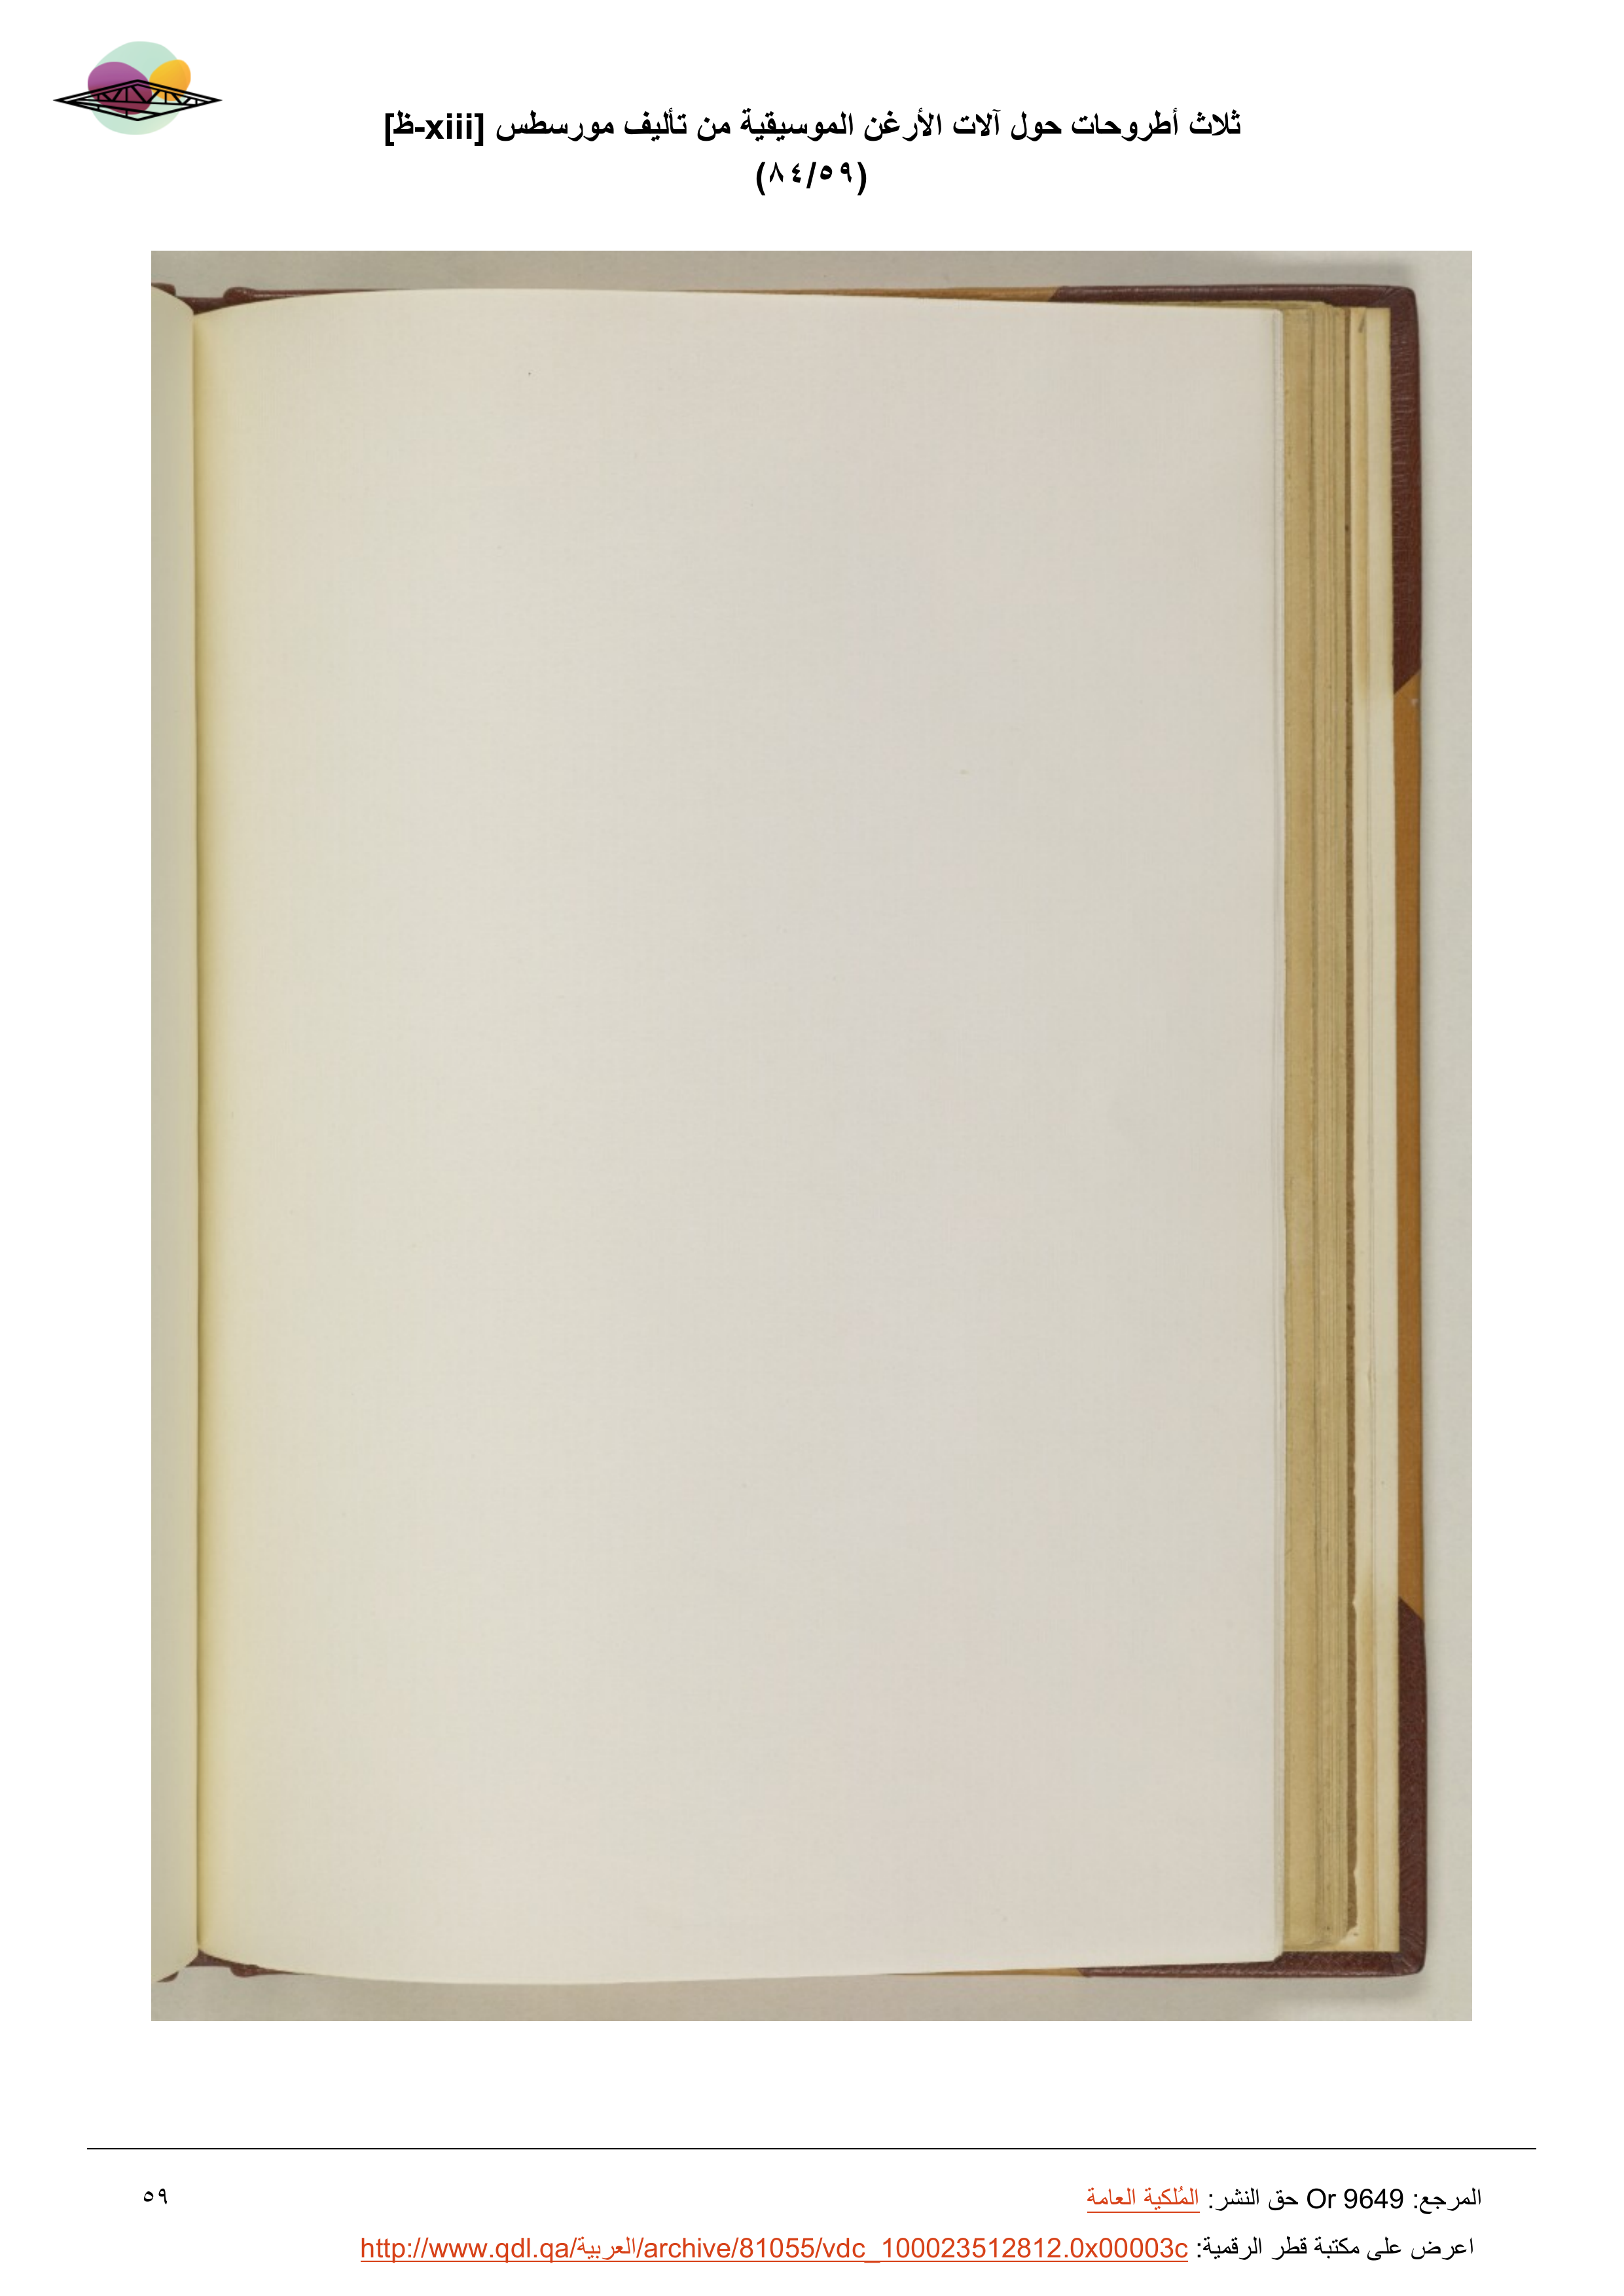 ثلاث أطروحات حول آلات الأرغن الموسيقية من تأليف مورسطس [xiii-ظ]
(٨٤/٥٩)
المرجع: Or 9649 حق النشر: المُلكية العامة
٥٩
اعرض على مكتبة قطر الرقمية: http://www.qdl.qa/العربية/archive/81055/vdc_100023512812.0x00003c